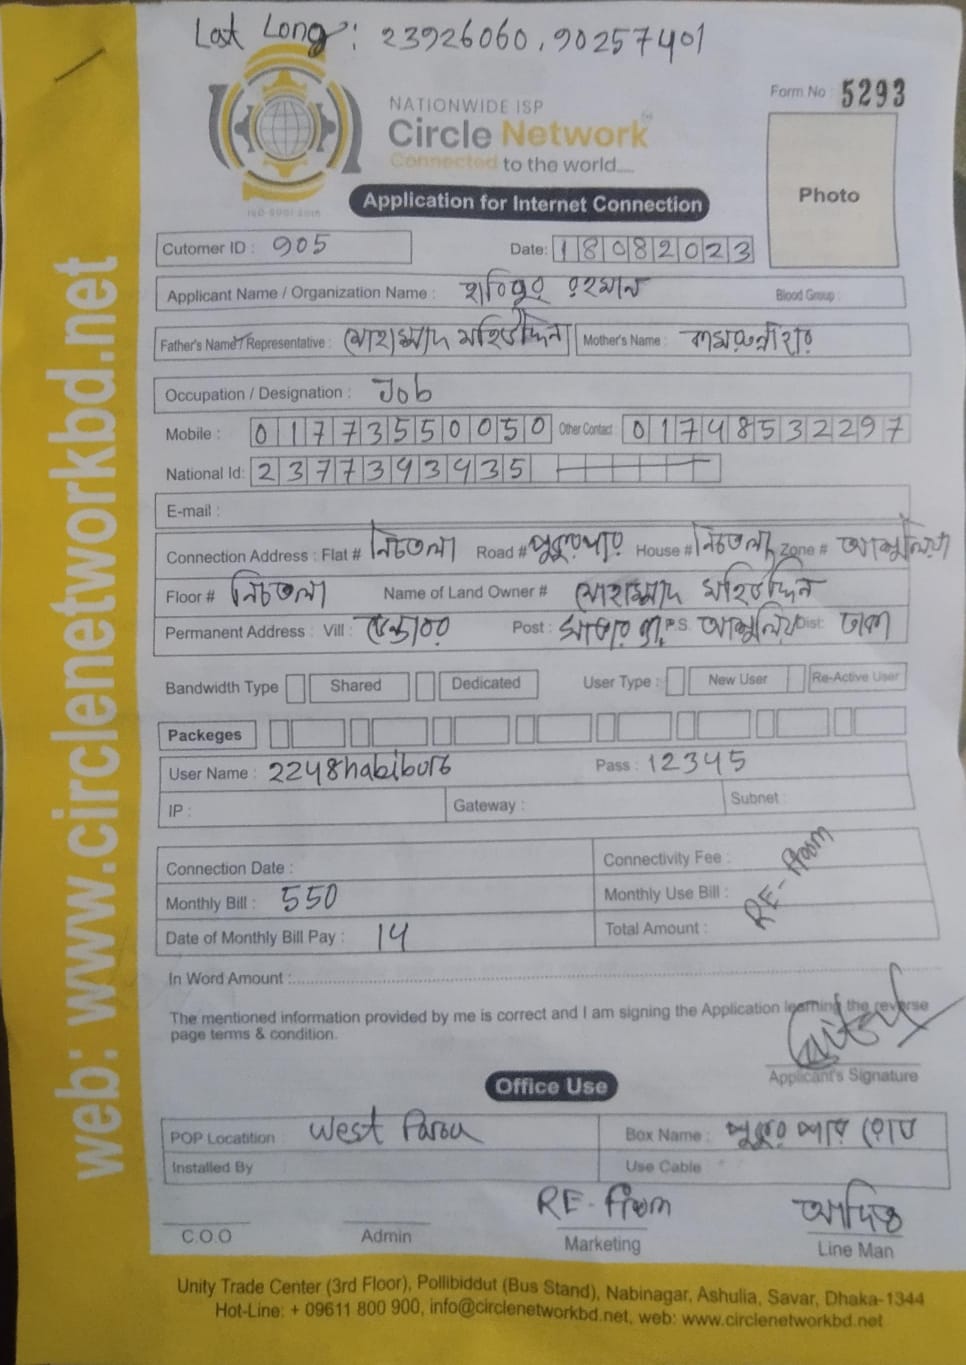 Lat Long: 23926060, 90257401
NATIONWIDE ISP
Form No 5293
Circle Network
Connected to the world....
Photo
ISO 9001:2015
Application for Internet Connection
Cutomer ID : 905 Date: 18082023
Applicant Name / Organization Name : হাবিবুর রহমান Blood Group :
Father's Name / Representative : মোহাম্মাদ মহিউদ্দিন Mother's Name : কামরুন্নাহার
Occupation / Designation : Job
Mobile : 01773550050 Other Contact 01748532297
National Id: 2377393935
E-mail :
Connection Address : Flat # নিচতলা Road # পুকুরপার House # নিচতলা Zone # আশুলিয়া
Floor # নিচতলা Name of Land Owner # মোহাম্মাদ মহিউদ্দিন
Permanent Address : Vill : Post : P.S. আশুলিয়া Dist: ঢাকা
Bandwidth Type Shared Dedicated User Type : New User Re-Active User
Packeges
User Name : 2248habibur6 Pass : 12345
IP : Gateway : Subnet :
Connection Date : Connectivity Fee :
Monthly Bill : 550 Monthly Use Bill :
Date of Monthly Bill Pay : 14 Total Amount :
RE-
In Word Amount :
The mentioned information provided by me is correct and I am signing the Application learning the reverse
page terms & condition.
Applicant's Signature
Office Use
POP Locatition : West Box Name : পুকুর পার
Installed By Use Cable
RE-
C.O.O Admin Marketing Line Man
Unity Trade Center (3rd Floor), Pollibiddut (Bus Stand), Nabinagar, Ashulia, Savar, Dhaka-1344
Hot-Line: + 09611 800 900, info@circlenetworkbd.net, web: www.circlenetworkbd.net
web: www.circlenetworkbd.net